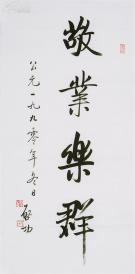 敬業樂群
公元一九九零年冬日
啟功